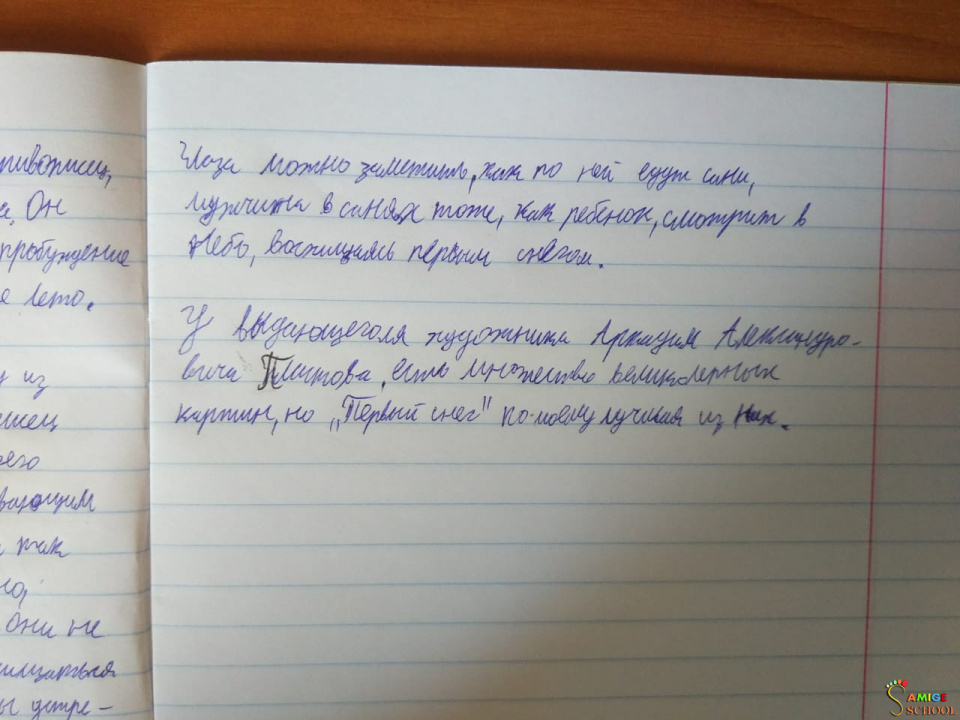 живописец,
а. Он
пробуждение
е лето.
у из
его
вающим
и так
но,
Они не
ы устре-
Глаза можно заметить, как по ней едут сани,
мужчина в санях тоже, как ребенок, смотрит в
небо, восхищаясь первым снегом.
У выдающегося художника Аркадим Александро-
вича Пластова, есть множество великолепных
картин, но „Первый снег" по-моему лучшая из них.
SAMIGE
SCHOOL